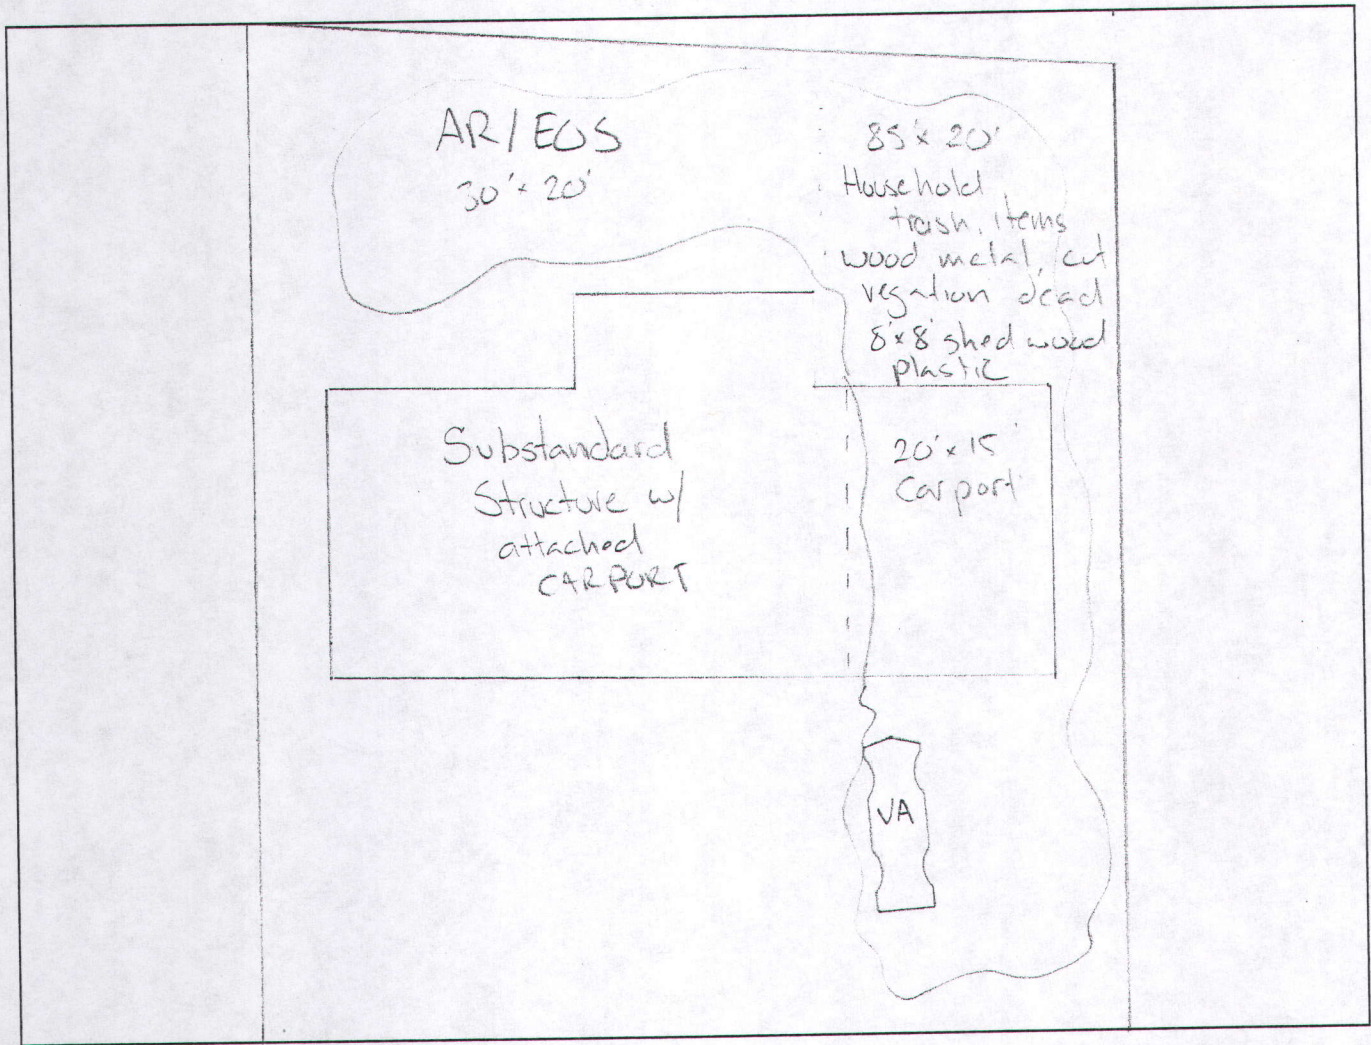 AR/EOS
30' x 20'
85' x 20'
Household
trash, items
wood metal, cut
vegation dead
8'x8' shed wood
plastic
Substandard
Structure w/
attached
CARPORT
20' x 15'
Carport
VA